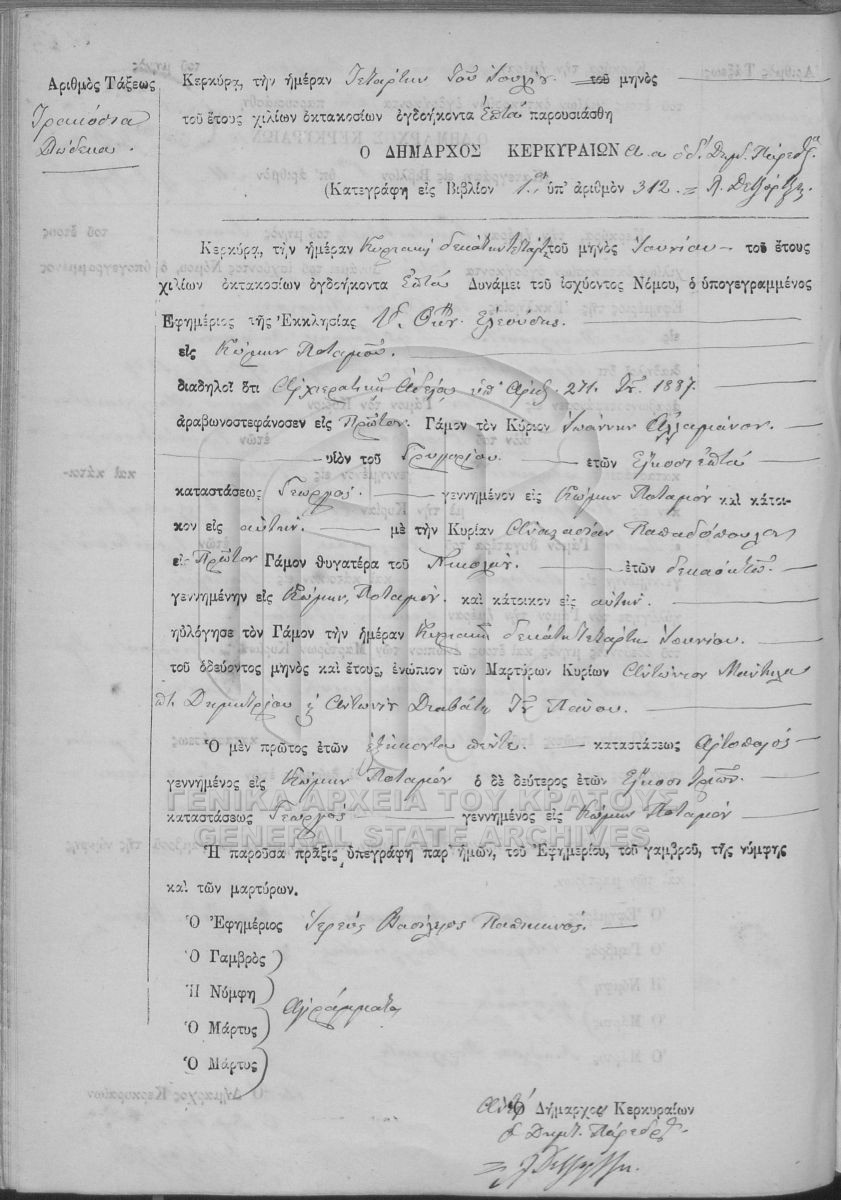 Ἀριθμὸς Τάξεως
Τριακόσια
Δώδεκα
Κερκύρᾳ, τὴν ἡμέραν Τετάρτην τοῦ Ἰουλίου τοῦ μηνὸς
τοῦ ἔτους χιλίων ὀκτακοσίων ὀγδοήκοντα ἑπτὰ παρουσιάσθη
Ὁ ΔΗΜΑΡΧΟΣ ΚΕΡΚΥΡΑΙΩΝ
(Κατεγράφη εἰς Βιβλίον 1ον ὑπ' ἀριθμὸν 312.
Κερκύρᾳ, τὴν ἡμέραν Κυριακὴ δεκάτην τετάρτ τοῦ μηνὸς Ἰουνίου τοῦ ἔτους
χιλίων ὀκτακοσίων ὀγδοήκοντα ἑπτὰ Δυνάμει τοῦ ἰσχύοντος Νόμου, ὁ ὑπογεγραμμένος
Ἐφημέριος τῆς Ἐκκλησίας Ἐλεούσης.
εἰς Κώμην Ποταμοῦ.
διαδηλοῖ ὅτι Ἀρχιερατικῇ Ἀδείᾳ ὑπ' Ἀριθ. 271. 1887.
ἀραβωνοστεφάνοσεν εἰς Πρῶτον. Γάμον τὸν Κύριον Ἰωάννην Ἀλαμάνον.
υἱὸν τοῦ Γρηγορίου. ἐτῶν Εἴκοσι ἑπτὰ
καταστάσεως Γεωργός. γεννημένον εἰς Κώμην Ποταμοῦ καὶ κάτοι-
κον εἰς αὐτήν. μὲ τὴν Κυρίαν Παπαδοπούλου
εἰς Πρῶτον Γάμον θυγατέρα τοῦ Νικολάου. ἐτῶν δεκαοκτώ.
γεννημένην εἰς Κώμην Ποταμοῦ. καὶ κάτοικον εἰς αὐτήν.
ηὐλόγησε τὸν Γάμον τὴν ἡμέραν Κυριακὴ δεκάτη τετάρτη Ἰουνίου.
τοῦ ὁδεύοντος μηνὸς καὶ ἔτους, ἐνώπιον τῶν Μαρτύρων Κυρίων Ἀντώνιον
Δημητρίου Ἀντώνιν Διαβάτη Πάνου.
Ὁ μὲν πρῶτος ἐτῶν ἑξήκοντα πέντε. καταστάσεως Ἀρτοποιός
γεννημένος εἰς Κώμην Ποταμοῦ ὁ δὲ δεύτερος ἐτῶν Εἴκοσι τριῶν.
ΓΕΝΙΚΑ ΑΡΧΕΙΑ ΤΟΥ ΚΡΑΤΟΥΣ
καταστάσεως Γεωργός γεννημένος εἰς Κώμην Ποταμοῦ
GENERAL STATE ARCHIVES
Ἡ παροῦσα πρᾶξις ὑπεγράφη παρ' ἡμῶν, τοῦ Ἐφημερίου, τοῦ γαμβροῦ, τῆς νύμφης
καὶ τῶν μαρτύρων.
Ὁ Ἐφημέριος Ἱερεὺς Βασίλειος
Ὁ Γαμβρὸς
Ἡ Νύμφη
Ἀγράμματοι
Ὁ Μάρτυς
Ὁ Μάρτυς
Δήμαρχος Κερκυραίων
ὁ Δημ. Πάρεδρ.